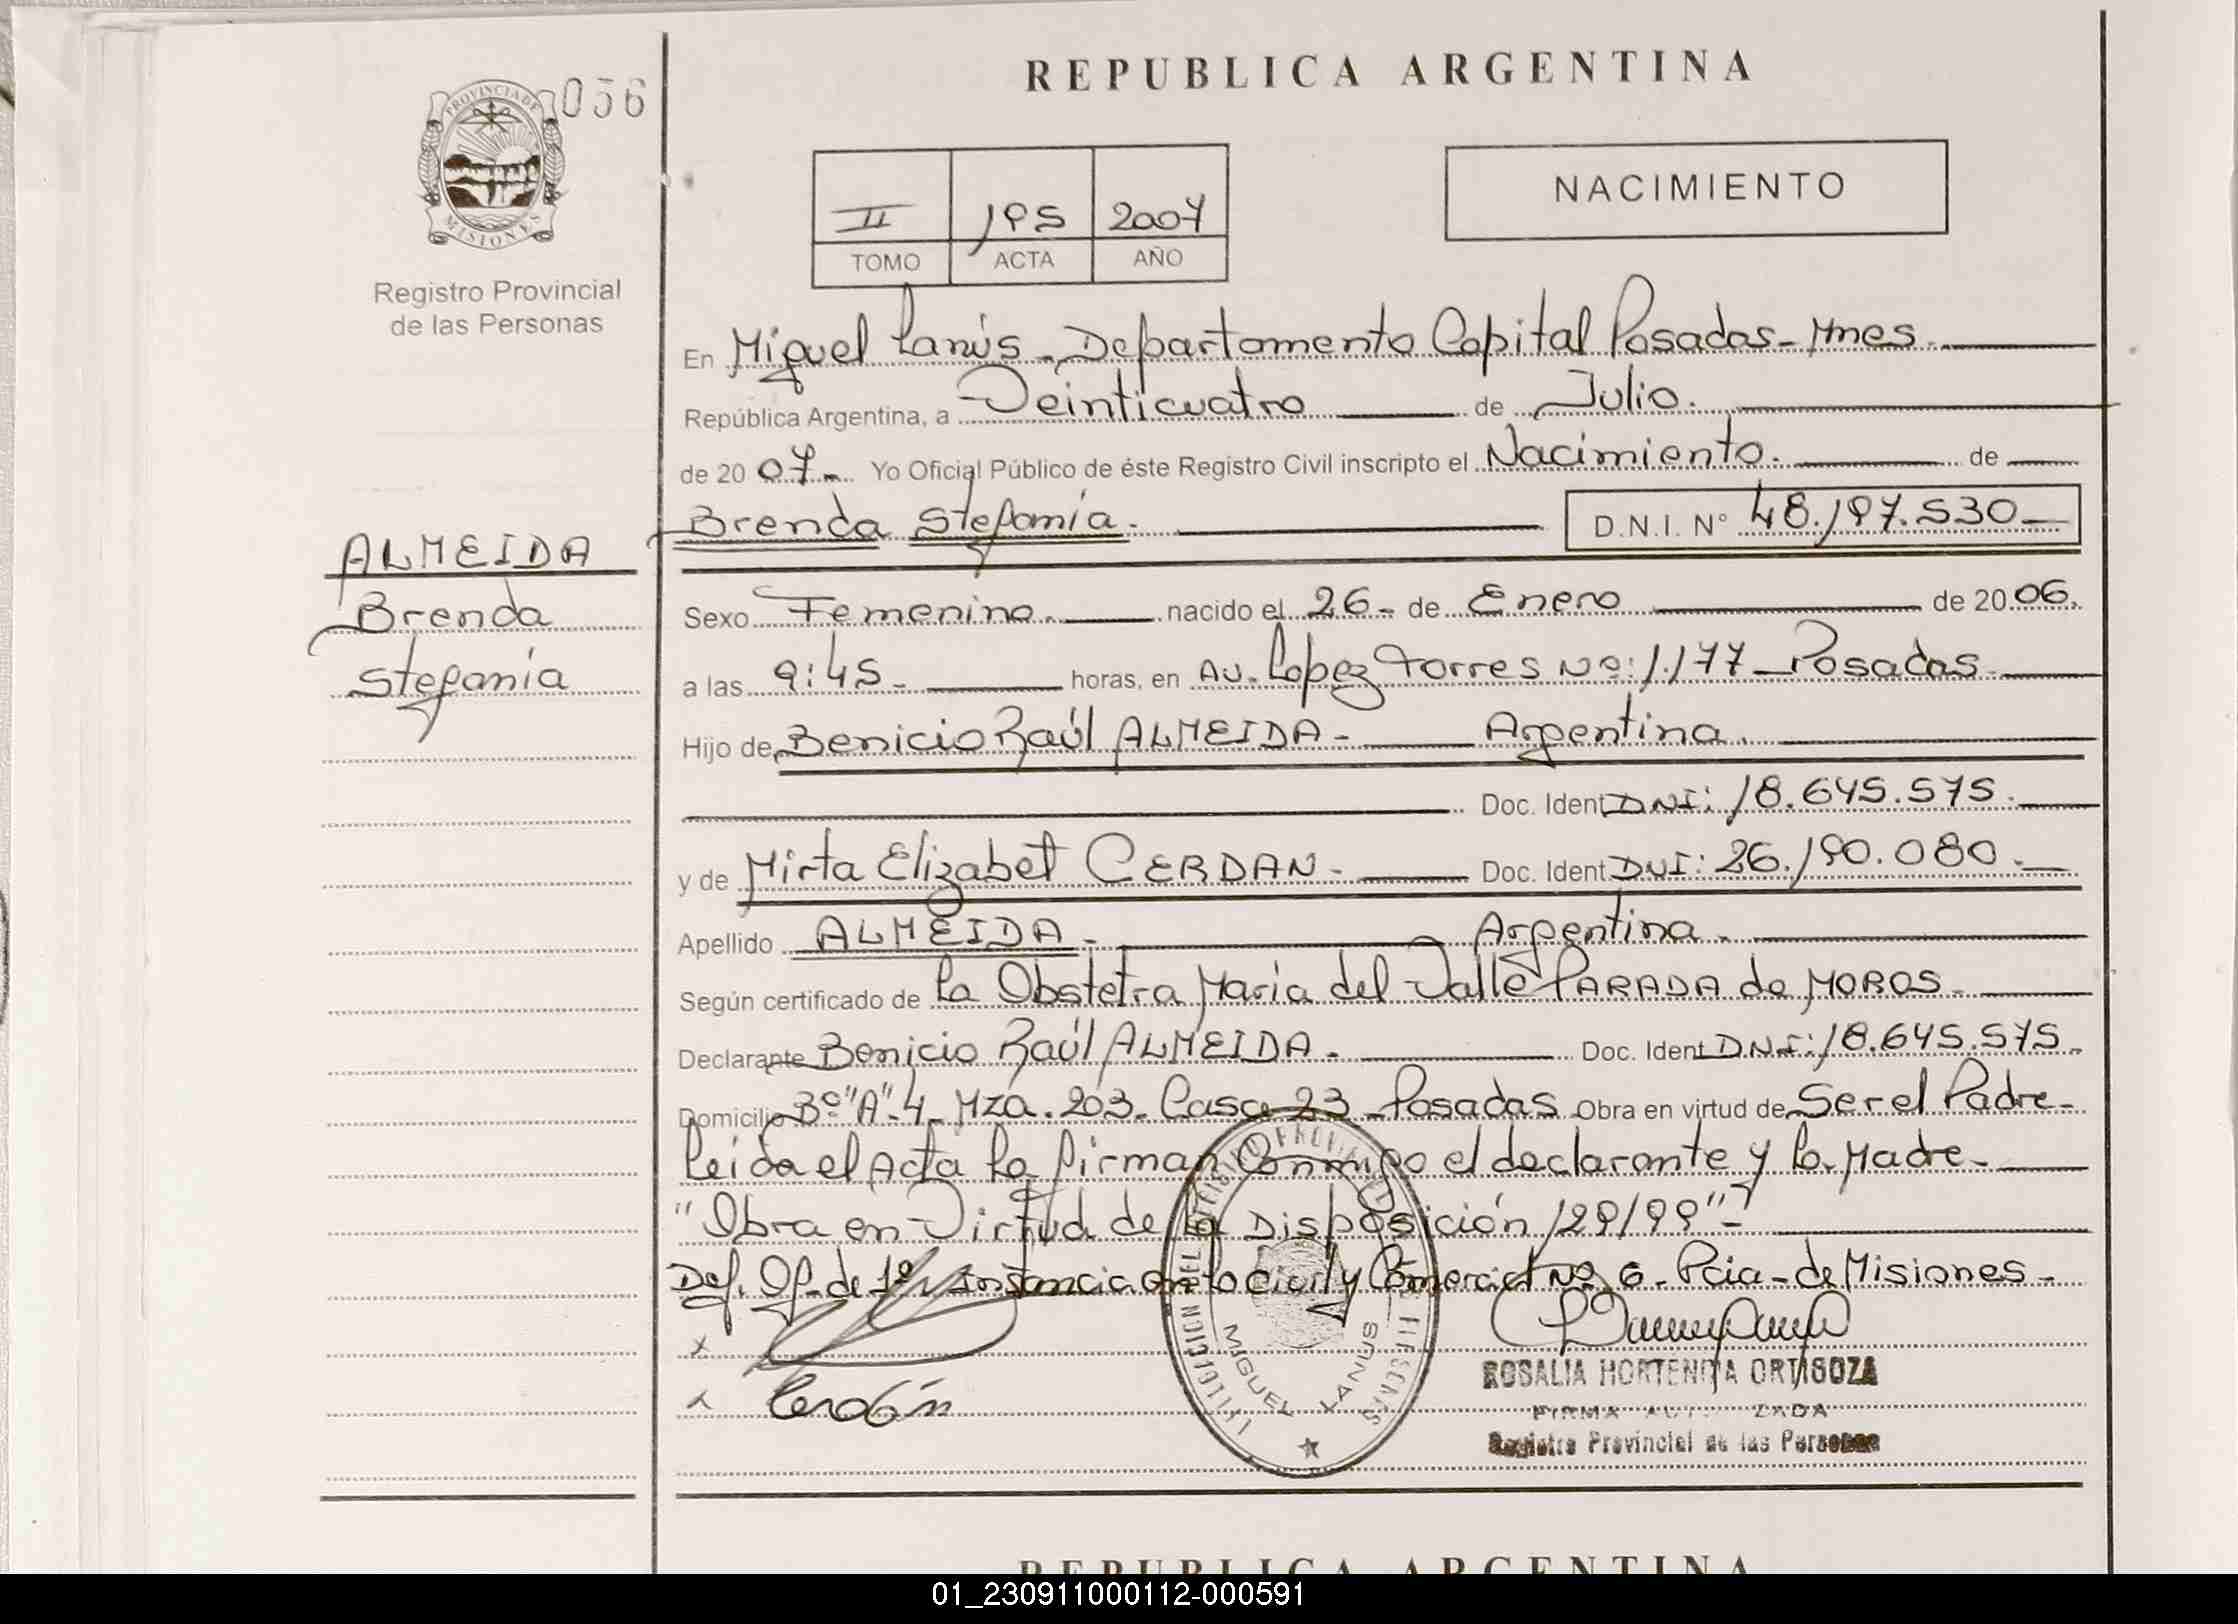 REPUBLICA ARGENTINA
PROVINCIA DE
MISIONES
056
Registro Provincial
de las Personas
II 195 2007
TOMO ACTA AÑO
NACIMIENTO
En Miguel Lanús - Departamento Capital Posadas - Mnes.
República Argentina, a Veinticuatro de Julio.
de 2007 - Yo Oficial Público de éste Registro Civil inscripto el Nacimiento. de
Brenda Stefanía. D.N.I. N° 48.197.530
ALMEIDA
Brenda
Stefanía
Sexo Femenino. nacido el 26 - de Enero de 2006.
a las 9:45 - horas, en Av. Lopez Torres Nº: 1.177 - Posadas
Hijo de Benicio Raúl ALMEIDA - Argentina.
Doc. Ident DNI: 18.645.575.
y de Mirta Elizabet CERDAN - Doc. Ident. DNI: 26.190.080.
Apellido ALMEIDA - Argentina.
Según certificado de La Obstetra María del Valle PARADA de MOROS.
Declarante Benicio Raúl ALMEIDA. Doc. Ident DNI: 18.645.575.
Domicilio Bº "A" - 4 - Mza. 203 - Casa 23 - Posadas Obra en virtud de Ser el Padre -
Leida el Acta la firman Conmigo el declarante y la Madre -
"Obra en Virtud de la Disposición 129/99" -
Def. Of. de 1º Instancia en lo Civil y Comercial Nº 6 - Pcia - de Misiones -
x
x Cerdán
MIGUEL LANUS
ROSALIA HORTENCIA ORTIGOZA
FIRMA AUTORIZADA
Registro Provincial de las Personas
REPUBLICA ARGENTINA
01_230911000112-000591